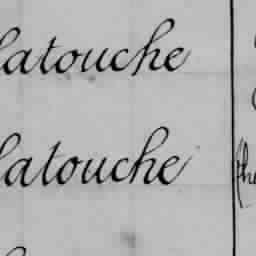 latouche
latouche